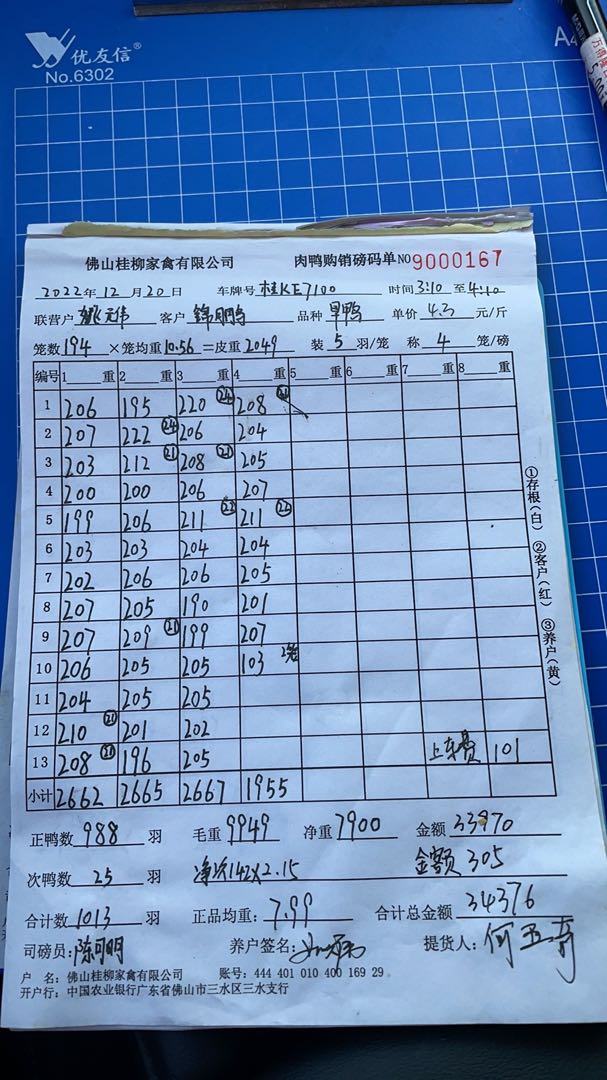 优友信®
No.6302
A4
佛山桂柳家禽有限公司 肉鸭购销磅码单 NO 9000167
2022年12月20日 车牌号 桂KE7100 时间 3:10 至 4:10
联营户 客户 锦鹏 品种 旦鸭 单价 4.3 元/斤
笼数 194 ×笼均重 10.56 =皮重 2049 装 5 羽/笼 称 4 笼/磅
编号 1 重 2 重 3 重 4 重 5 重 6 重 7 重 8 重
1 206 195 220 24 208 21
2 207 222 24 206 204
3 203 212 21 208 21 205
4 200 200 206 207
5 199 206 211 22 211 22
6 203 203 204 204
7 202 206 206 205
8 207 205 190 201
9 207 209 21 199 207
10 206 205 205 103 2笼
11 204 205 205
12 210 21 201 202
13 208 21 196 205 上车费 101
小计 2662 2665 2667 1955
①存根(白) ②客户(红) ③养户(黄)
正鸭数 988 羽 毛重 9949 净重 7900 金额 33970
次鸭数 25 羽 净次142×2.15 金额 305
合计数 1013 羽 正品均重: 7.99 合计总金额 34376
司磅员: 陈可明 养户签名: 提货人:
户 名: 佛山桂柳家禽有限公司 账号: 444 401 010 400 169 29
开户行: 中国农业银行广东省佛山市三水区三水支行